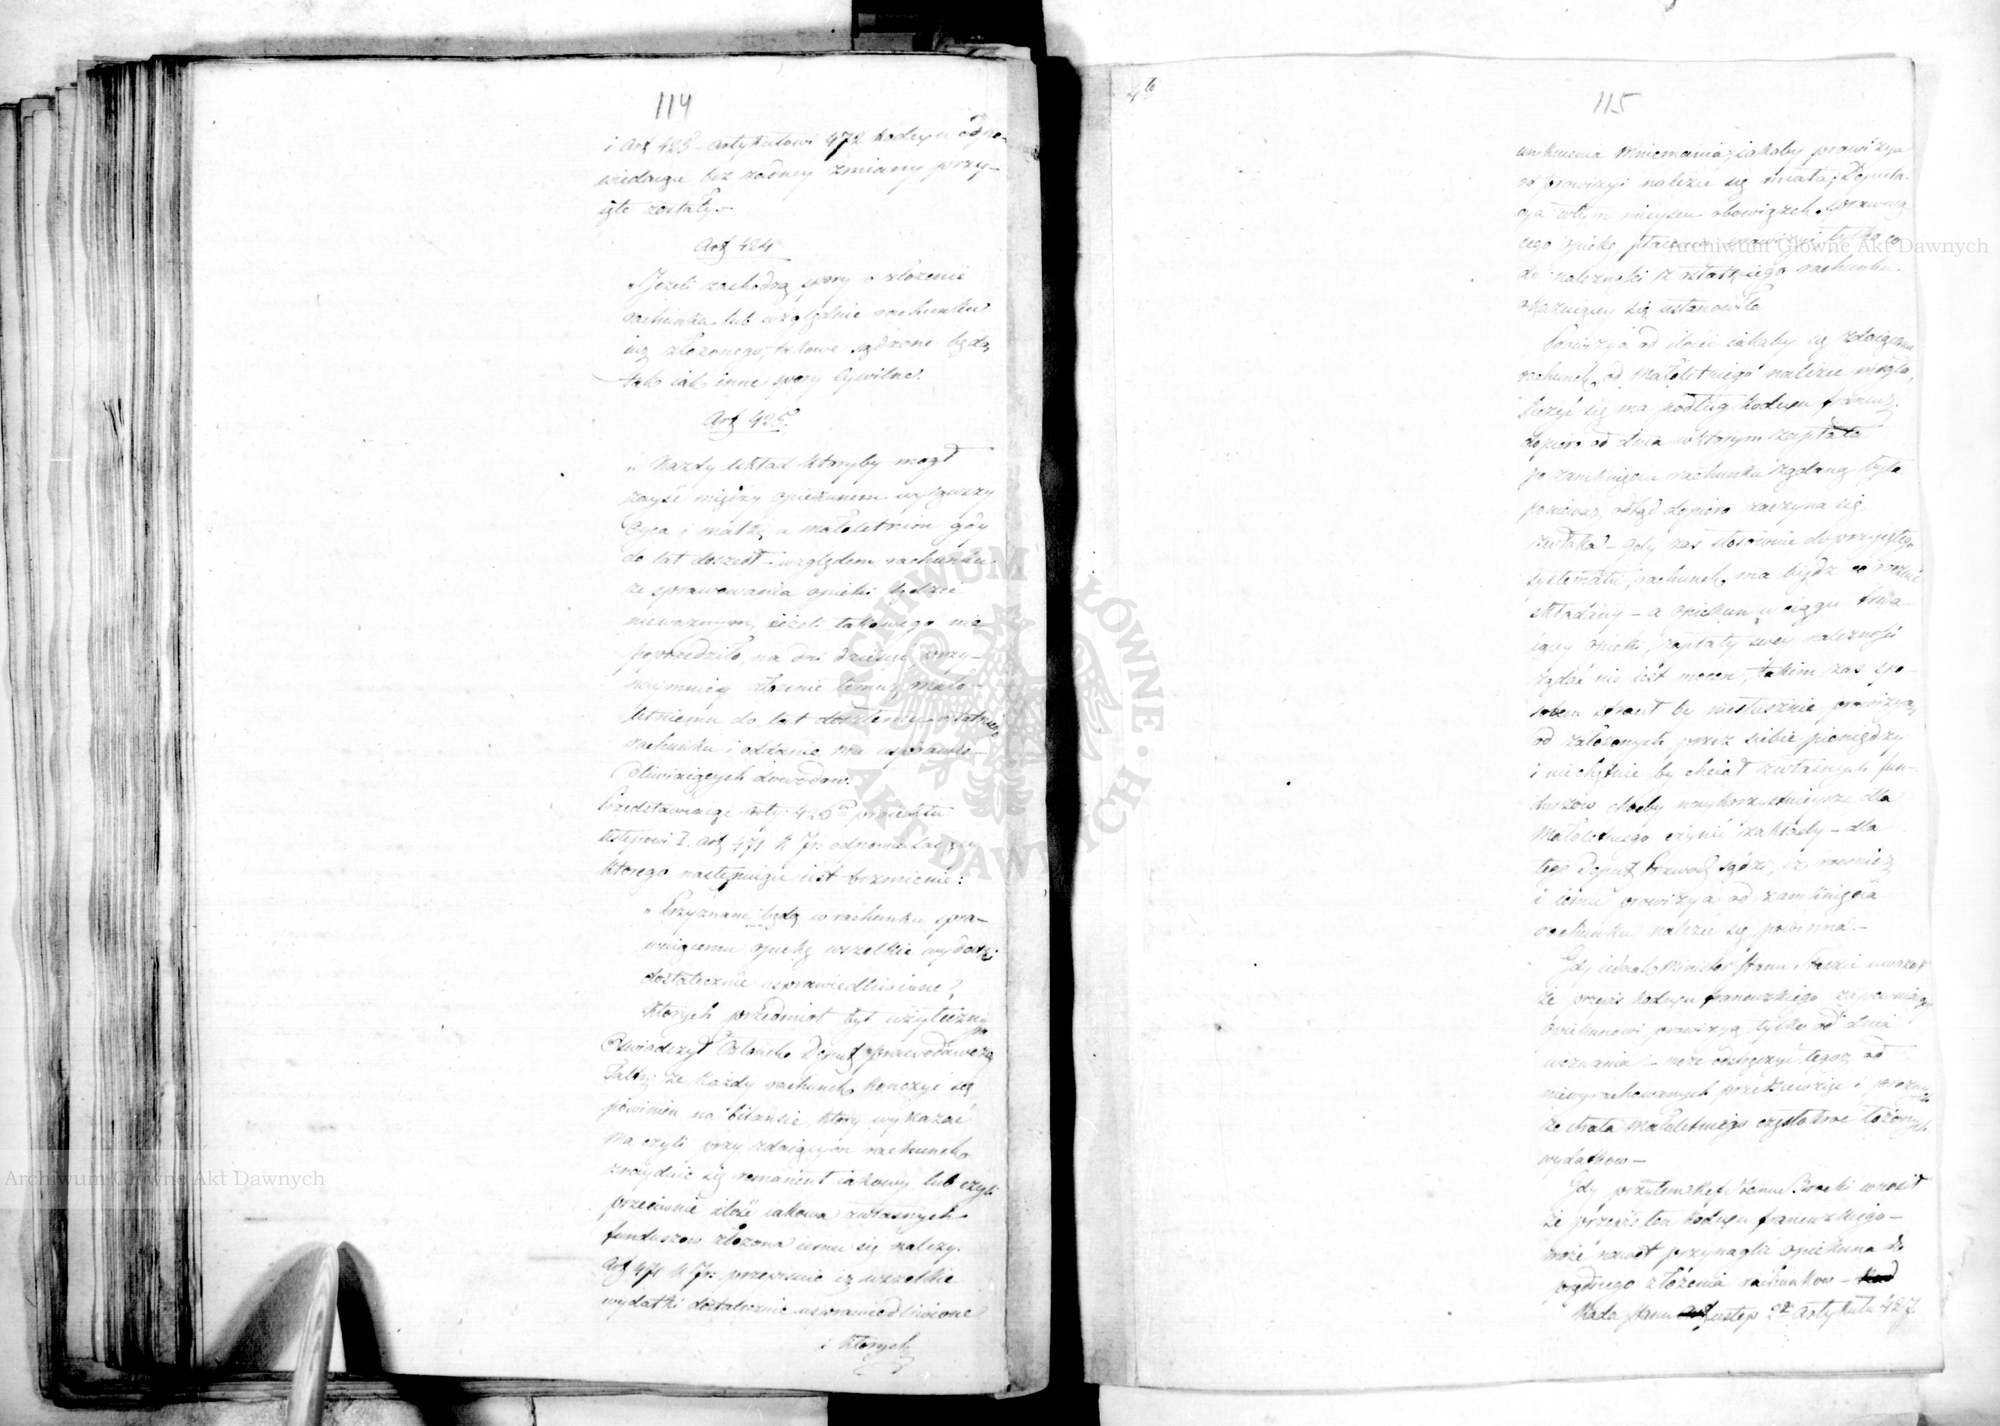 114
i Art 425 - artykułowi 472 kodexu odpo-
wiedaiąc bez żadney zmiany przy-
ięte zostały.
Art 424
"Jeżeli zachodzą spory o złożenie
rachunku lub względnie rachunku
iuż złożonego, takowe sądzone będą
tak iak inne spory Cywilne.
Art 425.
"Każdy układ któryby mógł
zayść między opiekunem wyiąwszy
Oyca i matkę a małoletnim gdy
do lat doszedł względem rachunku
ze sprawowania opieki będzie
nieważnym, ieżeli takowego nie
poprzedziło na dni dziesięć przy-
naymniey złożenie temuż mało-
letniemu do lat doszłemu ostatniego
rachunku i oddanie mu usprawie-
dliwiaiących dowodow.
Przedstawiaiąc Arty: 426ty proiektu
ustępowi I. art 471 K Fr: odpowiadaiący
którego następuiące iest brzmienie:
"Przyznane będą w rachunku spra-
wuiącemu opiekę wszelkie wydatki
dostatecznie usprawiedliwione,
których przedmiot był użytecznym
Oświadczył Członek Deput prawodawczey
że każdy rachunek kończyć się
powinien na bilansie który wykazać
ma czyli przy zdaiącym rachunek
znayduie się remanent iakowy, lub czyli
przeciwnie ilość iakowa z własnych
funduszow złożona iemu się należy.
Art 471 K Fr: przepisuie iż wszelkie
wydatki dostatecznie usprawiedliwione
i których
4to
115
uniknienia mniemania, iakoby prowizya
od prowizyi należeć się miała, Deputa-
cya w tym mieyscu obowiązek sprawuią-
cego opiekę płacenia prowizyi tylko co
do należności z ostatniego rachunku
okazuiącey się ustanowiła
Prowizya od ilości iakaby się zdaiącemu
rachunek od małoletniego należeć mogła,
liczyć się ma podług kodexu francuz:
dopiero od dnia w którym zapłata
po zamknięciu rachunku żądaną była
ponieważ odtąd dopiero zaczyna się
zwłoka - Gdy zaś stosownie do przyiętego
systematu, rachunek ma bydź co rocznie
składany - a opiekun w ciągu trwa-
iącey opieki, zapłaty swey należności
żądać nie iest mocen, takim zaś spo-
sobem straciłby niesłusznie prowizyą
od założonych przez siebie pieniędzy
i niechętnie by chciał z własnych fun-
duszow choćby naykorzystnieysze dla
małoletniego czynić zakłady - dla
tego Deput Prawod sądzi, iż również
i iemu prowizya od zamknięcia
rachunku należeć się powinna. -
Gdy iednak Minister Stanu Staszic uważał
że przepis kodexu francuzkiego zapewniaiący
opiekunowi prowizyą tylko od dnia
wezwania - może odstręczyć tegoż od
niewyrachowanych przedsięwzięć i
że strata małoletniego
wydatkow -
Gdy przytem Ref: Stanu wnosił
że przepis ten kodexu francuzkiego -
może nawet przynaglić opiekuna do
prędkiego złożenia rachunkow -
Rada Stanu ustęp 2gi Artykułu 427
Archiwum Główne Akt Dawnych
Archiwum Główne Akt Dawnych
ARCHIWUM GŁÓWNE AKT DAWNYCH